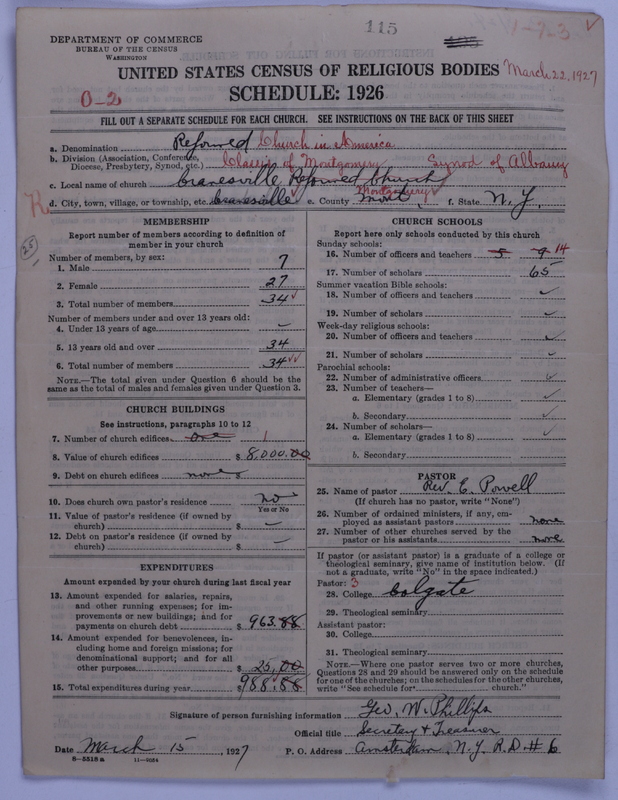 115
1-7-3
DEPARTMENT OF COMMERCE
BUREAU OF THE CENSUS
WASHINGTON
UNITED STATES CENSUS OF RELIGIOUS BODIES March 22, 1927
SCHEDULE: 1926
0-2
FILL OUT A SEPARATE SCHEDULE FOR EACH CHURCH. SEE INSTRUCTIONS ON THE BACK OF THIS SHEET
a. Denomination Reformed Church in America
b. Division (Association, Conference, Diocese, Presbytery, Synod, etc.) Classis of Montgomery Synod of Albany
c. Local name of church Cranesville Reformed Church
d. City, town, village, or township, etc. Cranesville e. County Mont Montgomery f. State N.Y.
25
MEMBERSHIP
Report number of members according to definition of
member in your church
Number of members, by sex:
1. Male 7
2. Female 27
3. Total number of members 34
Number of members under and over 13 years old:
4. Under 13 years of age –
5. 13 years old and over 34
6. Total number of members 34
NOTE.—The total given under Question 6 should be the
same as the total of males and females given under Question 3.
CHURCH BUILDINGS
See instructions, paragraphs 10 to 12
7. Number of church edifices one 1
8. Value of church edifices $ 8,000.00
9. Debt on church edifices none $
10. Does church own pastor's residence no
Yes or No
11. Value of pastor's residence (if owned by
church) $ –
12. Debt on pastor's residence (if owned by
church) $ –
EXPENDITURES
Amount expended by your church during last fiscal year
13. Amount expended for salaries, repairs,
and other running expenses; for im-
provements or new buildings; and for
payments on church debt $ 963.88
14. Amount expended for benevolences, in-
cluding home and foreign missions; for
denominational support; and for all
other purposes $ 25.00
15. Total expenditures during year $ 988.88
CHURCH SCHOOLS
Report here only schools conducted by this church
Sunday schools:
16. Number of officers and teachers 5 9 14
17. Number of scholars 65
Summer vacation Bible schools:
18. Number of officers and teachers
19. Number of scholars
Week-day religious schools:
20. Number of officers and teachers
21. Number of scholars
Parochial schools:
22. Number of administrative officers
23. Number of teachers—
a. Elementary (grades 1 to 8)
b. Secondary
24. Number of scholars—
a. Elementary (grades 1 to 8)
b. Secondary
PASTOR
25. Name of pastor Rev. C. Powell
(If church has no pastor, write "None")
26. Number of ordained ministers, if any, em-
ployed as assistant pastors none
27. Number of other churches served by the
pastor or his assistants none
If pastor (or assistant pastor) is a graduate of a college or
theological seminary, give name of institution below. (If
not a graduate, write "No" in the space indicated.)
Pastor: 3
28. College Colgate
29. Theological seminary
Assistant pastor:
30. College
31. Theological seminary
NOTE.—Where one pastor serves two or more churches,
Questions 28 and 29 should be answered only on the schedule
for one of the churches; on the schedules for the other churches,
write "See schedule for church."
Signature of person furnishing information Geo. W. Phillips
Official title Secretary & Treasurer
Date March 15, 1927 P. O. Address Amsterdam, N.Y. R.D. # 6
8-5518 a 11-9024